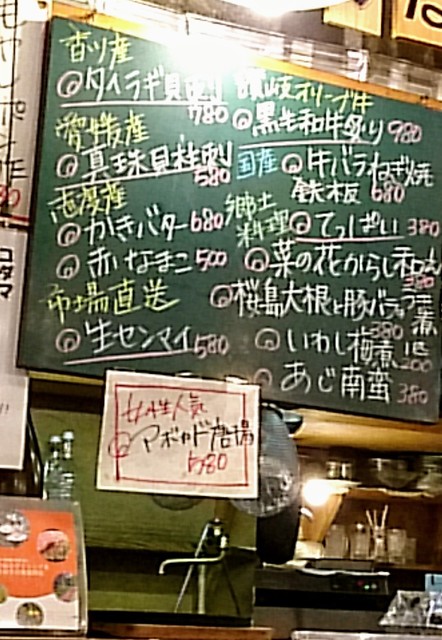 香川産
タイラギ貝刺し
780
愛媛産
真珠貝柱刺し
580
志度産
かきバター 680
赤なまこ 500
市場直送
生センマイ 580
讃岐オリーブ牛
黒毛和牛炙り 980
国産
牛バラねぎ焼
鉄板 680
郷土
料理
てっぱい 380
菜の花からし和え
桜島大根と豚バラ
380
いわし梅煮
あじ南蛮 380
女性人気
アボカド
580